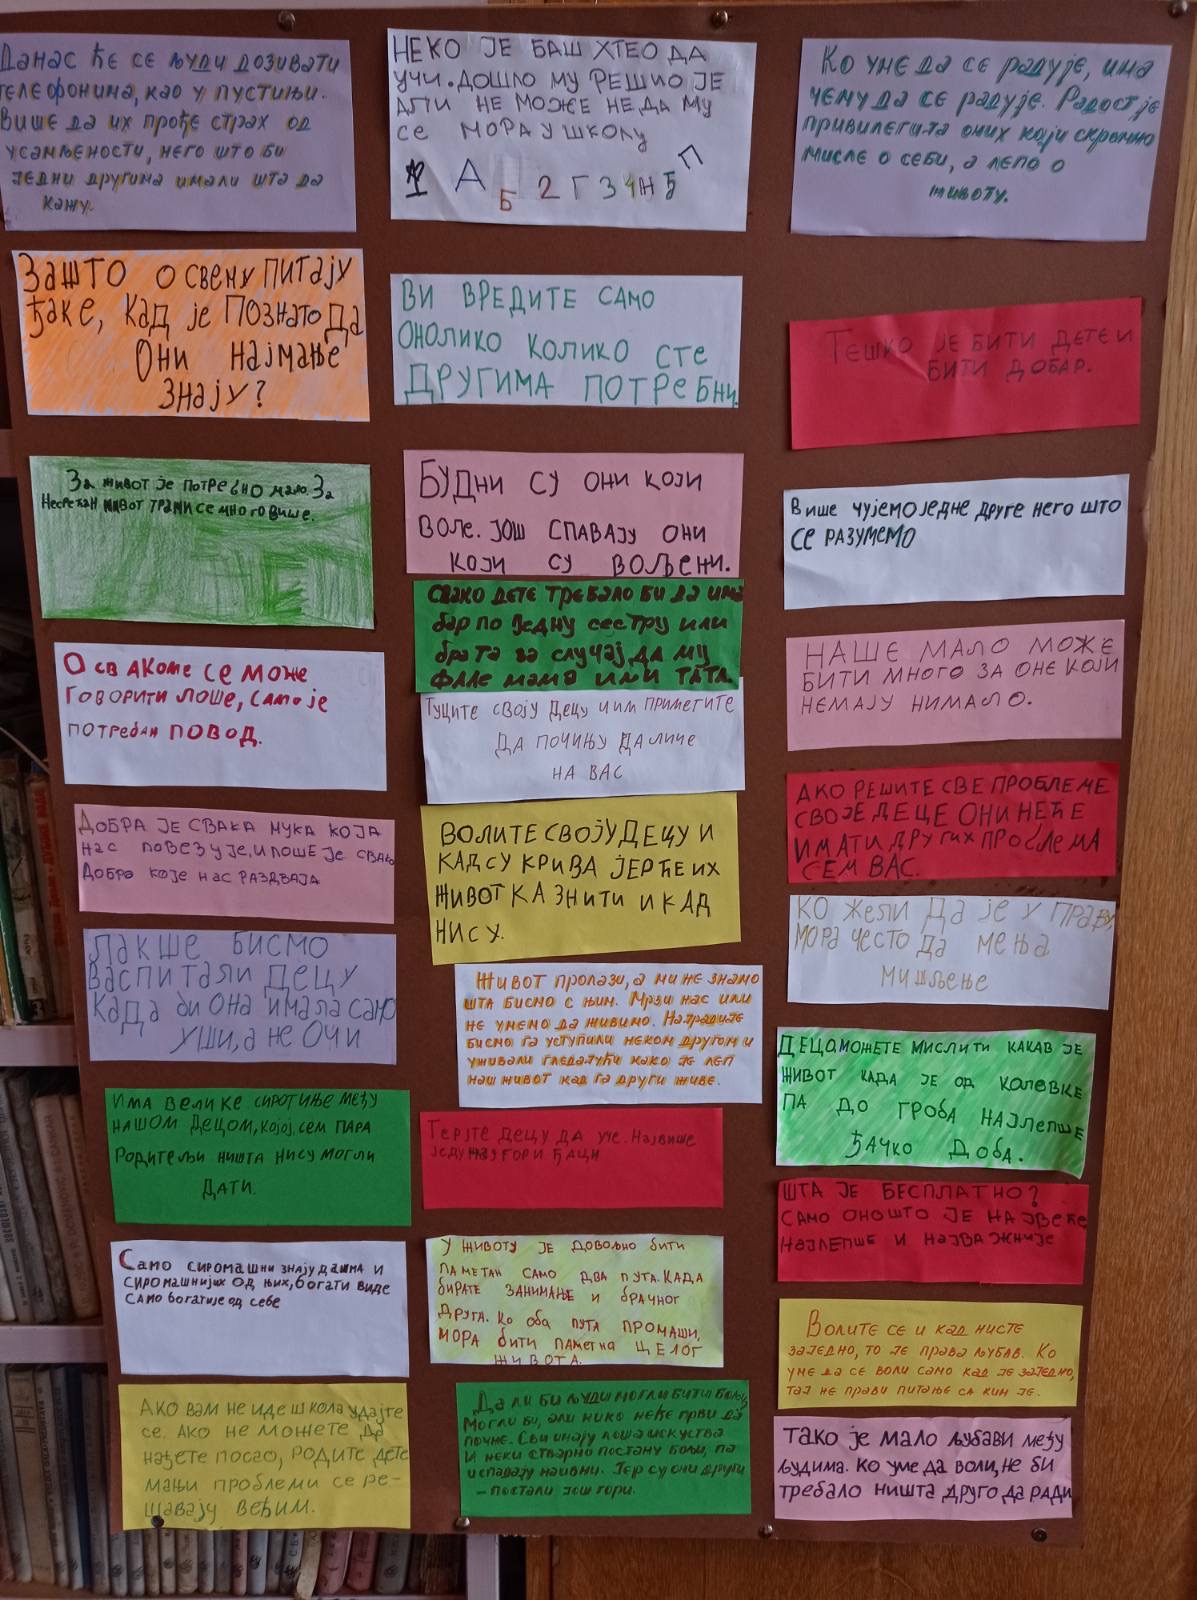 Данас ће се људи дозивати
телефонима, као у пустињи.
Више да их прође страх од
усамљености, него што би
једни другима имали шта да
кажу.
ЗАШТО О СВЕМУ ПИТАЈУ
ЂАКЕ, КАД ЈЕ ПОЗНАТО ДА
ОНИ НАЈМАЊЕ
ЗНАЈУ?
За живот је потребно мало. За
Несрећан живот тражи се много више.
О СВАКОМЕ СЕ МОЖЕ
ГОВОРИТИ ЛОШЕ, САМО ЈЕ
ПОТРЕБАН ПОВОД.
ДОБРА ЈЕ СВАКА МУКА КОЈА
НАС ПОВЕЗУЈЕ, И ЛОШЕ ЈЕ СВАКО
ДОБРО КОЈЕ НАС РАЗДВАЈА
ЛАКШЕ БИСМО
ВАСПИТАЛИ ДЕЦУ
КАДА БИ ОНА ИМАЛА САМО
УШИ, А НЕ ОЧИ
ИМА ВЕЛИКЕ СИРОТИЊЕ МЕЂУ
НАШОМ ДЕЦОМ, КОЈОЈ, СЕМ ПАРА
РОДИТЕЉИ НИШТА НИСУ МОГЛИ
ДАТИ.
САМО СИРОМАШНИ ЗНАЈУ ДА ИМА И
СИРОМАШНИЈИХ ОД ЊИХ, БОГАТИ ВИДЕ
САМО БОГАТИЈЕ ОД СЕБЕ
АКО ВАМ НЕ ИДЕ ШКОЛА УДАЈТЕ
СЕ. АКО НЕ МОЖЕТЕ ДА
НАЂЕТЕ ПОСАО, РОДИТЕ ДЕТЕ
МАЊИ ПРОБЛЕМИ СЕ РЕ-
ШАВАЈУ ВЕЋИМ.
НЕКО ЈЕ БАШ ХТЕО ДА
УЧИ. ДОШЛО МУ РЕШИО ЈЕ
АЛИ НЕ МОЖЕ НЕ ДА МУ
СЕ МОРА У ШКОЛУ
1 А Б 2 Г 3 4 Н Ђ П
ВИ ВРЕДИТЕ САМО
ОНОЛИКО КОЛИКО СТЕ
ДРУГИМА ПОТРЕБНИ.
БУДНИ СУ ОНИ КОЈИ
ВОЛЕ. ЈОШ СПАВАЈУ ОНИ
КОЈИ СУ ВОЉЕНИ.
СВАКО ДЕТЕ ТРЕБАЛО БИ ДА ИМА
БАР ПО ЈЕДНУ СЕСТРУ ИЛИ
БРАТА ЗА СЛУЧАЈ ДА МУ
ФАЛЕ МАМА ИЛИ ТАТА.
ТУЦИТЕ СВОЈУ ДЕЦУ ЧИМ ПРИМЕТИТЕ
ДА ПОЧИЊУ ДА ЛИЧЕ
НА ВАС
ВОЛИТЕ СВОЈУ ДЕЦУ И
КАД СУ КРИВА ЈЕР ЋЕ ИХ
ЖИВОТ КАЗНИТИ И КАД
НИСУ.
Живот пролази, а ми не знамо
шта бисмо с њим. Мрзи нас или
не умемо да живимо. Најрадије
бисмо га уступили неком другом и
уживали гледајући како је леп
наш живот кад га други живе.
ТЕРЈТЕ ДЕЦУ ДА УЧЕ. НАЈВИШЕ
ЈЕДУ НАЈГОРИ ЂАЦИ
У ЖИВОТУ ЈЕ ДОВОЉНО БИТИ
ПАМЕТАН САМО ДВА ПУТА. КАДА
БИРАТЕ ЗАНИМАЊЕ И БРАЧНОГ
ДРУГА. КО ОБА ПУТА ПРОМАШИ,
МОРА БИТИ ПАМЕТНА ЦЕЛОГ
ЖИВОТА.
Да ли би људи могли бити бољи,
Могли би, али нико неће први да
почне. Сви имају лоша искуства
И неки стварно постану бољи, па
испадају наивни. Јер су они други
– постали још гори.
Ко уме да се радује, има
чему да се радује. Радост је
привилегија оних који скромно
мисле о себи, а лепо о
животу.
ТЕШКО ЈЕ БИТИ ДЕТЕ И
БИТИ ДОБАР.
Више чујемо једне друге него што
СЕ РАЗУМЕМО
НАШЕ МАЛО МОЖЕ
БИТИ МНОГО ЗА ОНЕ КОЈИ
НЕМАЈУ НИМАЛО.
АКО РЕШИТЕ СВЕ ПРОБЛЕМЕ
СВОЈЕ ДЕЦЕ ОНИ НЕЋЕ
ИМАТИ ДРУГИХ ПРОБЛЕМА
СЕМ ВАС.
КО ЖЕЛИ ДА ЈЕ У ПРАВУ,
МОРА ЧЕСТО ДА МЕЊА
МИШЉЕЊЕ
ДЕЦО, МОЖЕТЕ МИСЛИТИ КАКАВ ЈЕ
ЖИВОТ КАДА ЈЕ ОД КОЛЕВКЕ
ПА ДО ГРОБА НАЈЛЕПШЕ
ЂАЧКО ДОБА.
ШТА ЈЕ БЕСПЛАТНО?
САМО ОНО ШТО ЈЕ НАЈВЕЋЕ
НАЈЛЕПШЕ И НАЈВАЖНИЈЕ
Волите се и кад нисте
заједно, то је права љубав. Ко
уме да се воли само кад је заједно,
тај не прави питање са ким је.
ТАКО ЈЕ МАЛО ЉУБАВИ МЕЂУ
ЉУДИМА. КО УМЕ ДА ВОЛИ, НЕ БИ
ТРЕБАЛО НИШТА ДРУГО ДА РАДИ